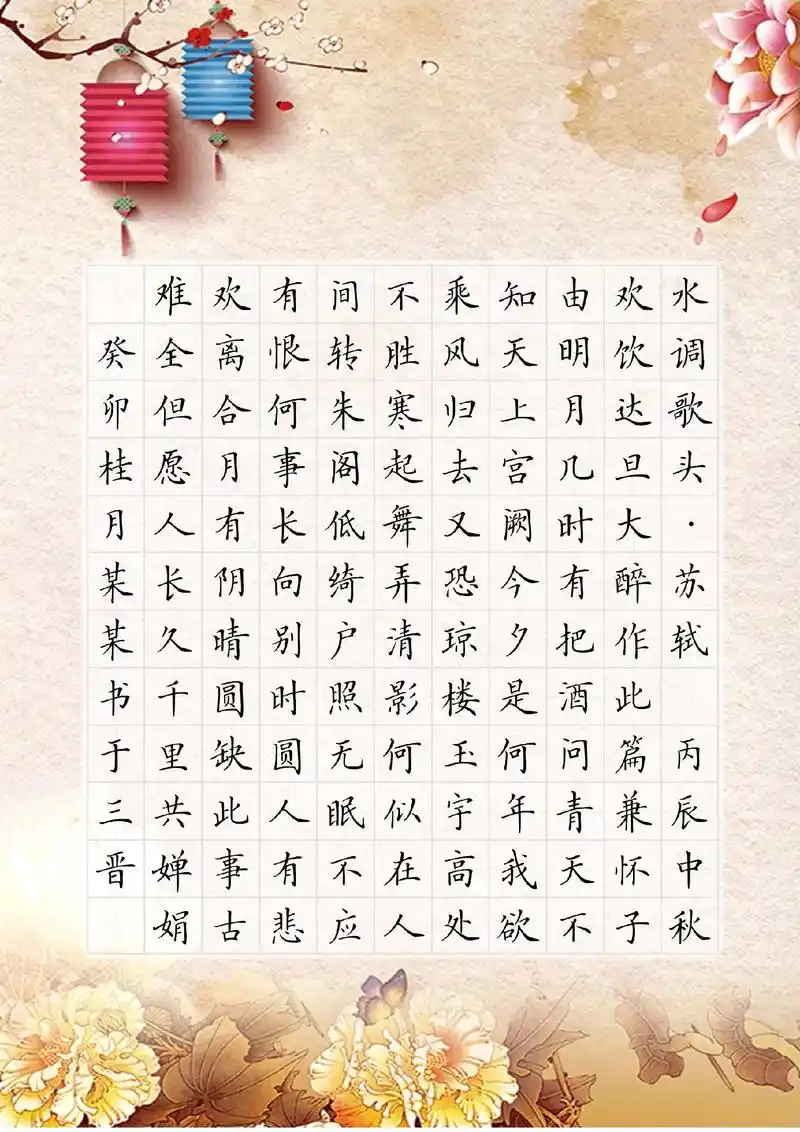 水调歌头·苏轼 丙辰中秋
欢饮达旦大醉作此篇兼怀子
由明月几时有把酒问青天不
知天上宫阙今夕是何年我欲
乘风归去又恐琼楼玉宇高处
不胜寒起舞弄清影何似在人
间转朱阁低绮户照无眠不应
有恨何事长向别时圆人有悲
欢离合月有阴晴圆缺此事古
难全但愿人长久千里共婵娟
癸卯桂月某某书于三晋